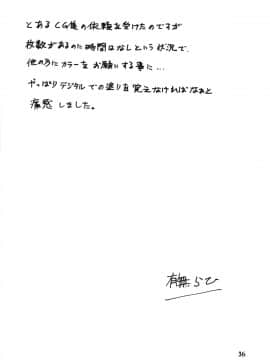 とあるCG集の依頼を受けたのですが
枚数があるのに時間はなしという状況で、
他の方にカラーをお願いする事に…
やっぱりデジタルでの塗りを覚えなければなぁと
痛感しました。
有無らひ
36